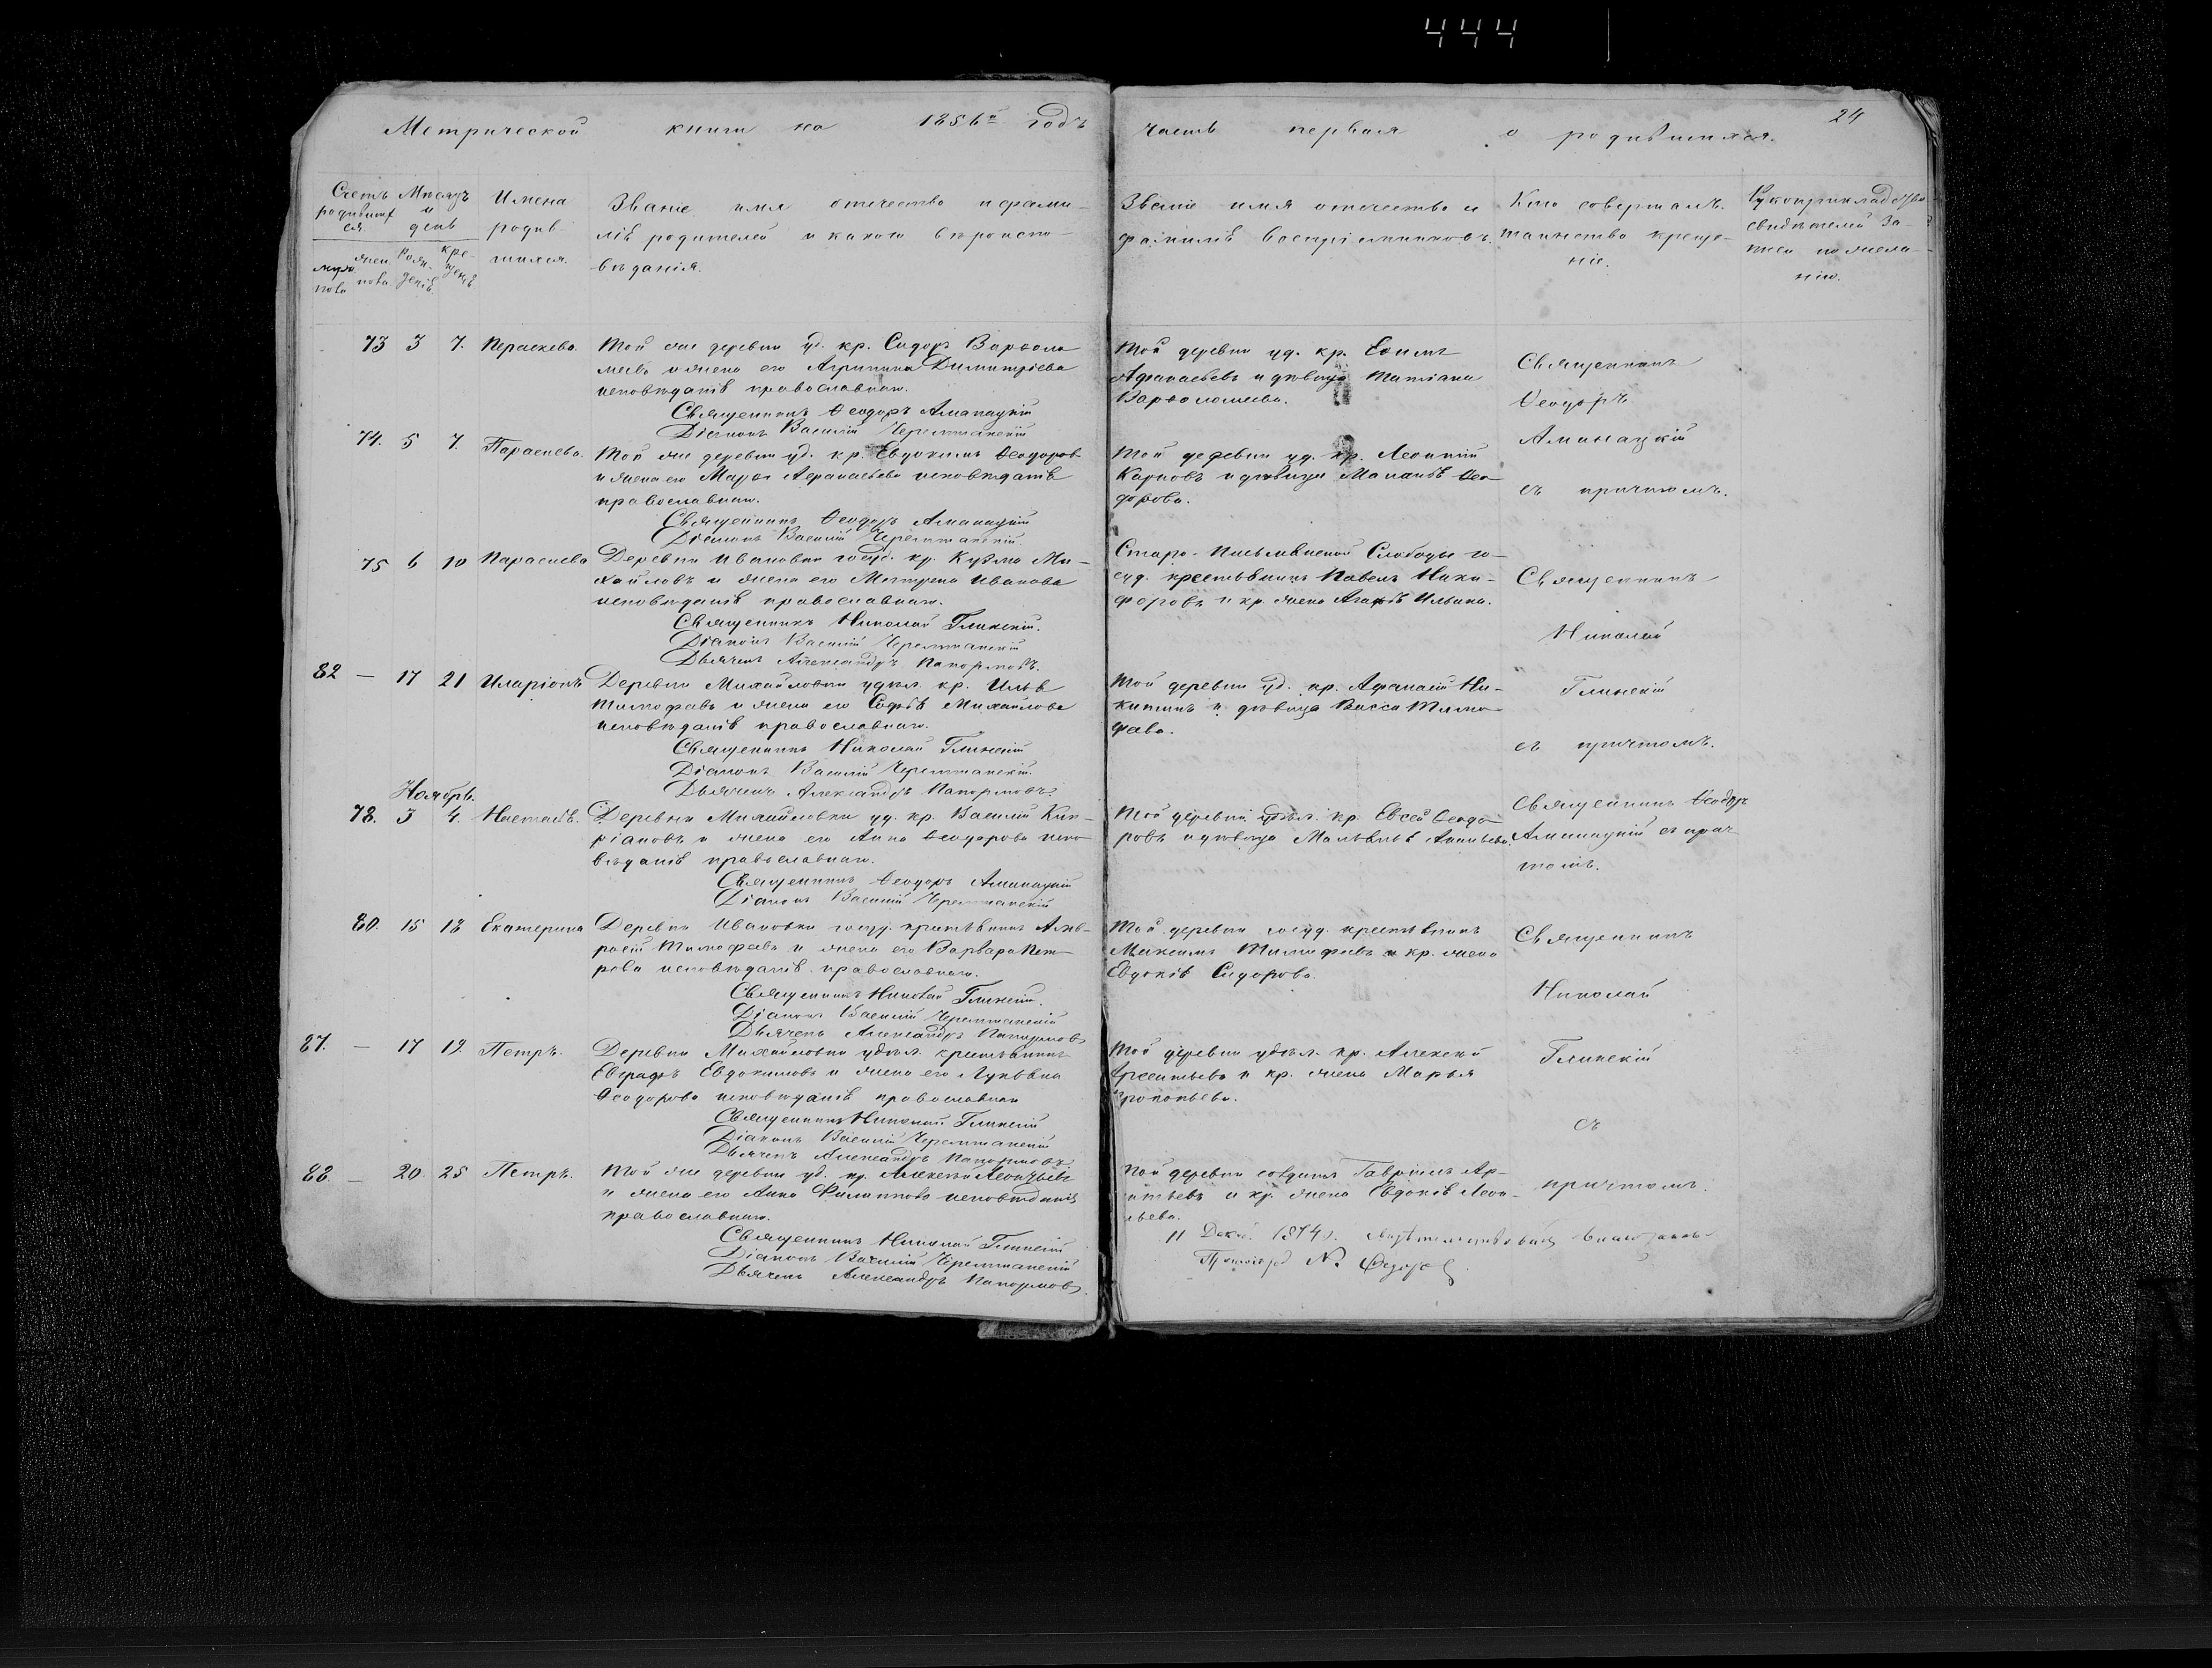 444
24
Метрической книги на 1856й годъ часть первая о родившихся.
Счетъ родившихся.
Мѣсяцъ и день
Имена родив-
шихся.
Званіе имя отечество и фами-
лія родителей и какого вѣроиспо-
вѣданія.
Званіе имя отечество и
фамилія воспріемниковъ.
Кто совершалъ
таинство креще-
нія.
Рукоприкладство
свидѣтелей за-
писи по жела-
нію.
муж
пола
жен.
пола
рож-
денія
кре-
щенія
73 3 7. Параскева. Той же деревни уд. кр. Сидоръ Варѳоло
меевъ и жена его Агрипина Димитріева
исповѣданія православнаго.
Священникъ Ѳеодоръ Аманацкій
Діаконъ Василій Черемшанскій
Той деревни уд. кр. Евимъ
Афанасьевъ и дѣвица Татіана
Варѳоломеева.
Священникъ
Ѳеодоръ
Аманацкій
съ причтомъ.
74. 5 7. Параскева. Той же деревни уд. кр. Евдокимъ Ѳеодоровъ
и жена его Марѳа Афанасьева исповѣданія
православнаго.
Священникъ Ѳеодоръ Аманацкій
Діаконъ Василій Черемшанскій.
Той деревни уд. кр. Леонтій
Карповъ и дѣвица Маланія Ѳео
дорова.
75 6 10 Параскева Деревни Ивановки госуд. кр. Кузма Ми-
хайловъ и жена его Матрена Иванова
исповѣданія православнаго.
Священникъ Николай Глинскій.
Діаконъ Василій Черемшанскій
Дьячекъ Александръ Папормовъ.
Старо-Письмянской Слободы го-
суд. крестьянинъ Павелъ Ники-
форовъ и кр. жена Агафія Ильина.
Священникъ
Николай
Глинскій
съ причтомъ.
82 — 17 21 Иларіонъ Деревни Михайловки удѣл. кр. Илья
Тимофеевъ и жена его Софія Михайлова
исповѣданія православнаго.
Священникъ Николай Глинскій
Діаконъ Василій Черемшанскій.
Дьячекъ Александръ Папормовъ.
Той деревни уд. кр. Афанасій Ни-
китинъ и дѣвица Васса Тимо
феева.
Ноябрь.
78. 3 4. Настасія. Деревни Михайловки уд. кр. Василій Кип-
ріановъ и жена его Анна Ѳеодорова испо
вѣданія православнаго.
Священникъ Ѳеодоръ Аманацкій
Діаконъ Василій Черемшанскій
Той деревни удѣл. кр. Евсей Ѳеодо
ровъ и дѣвица
Священникъ Ѳеодоръ
Аманацкій съ прич
томъ.
80. 15 18 Екатерина Деревни Ивановки госуд. крестьянинъ Амв-
росій Тимофеевъ и жена его Варвара Пет
рова исповѣданія православнаго.
Священникъ Николай Глинскій.
Діаконъ Василій Черемшанскій
Дьячекъ Александръ Папормовъ
Той деревни госуд. крестьянинъ
Максимъ Тимофеевъ и кр. жена
Евдокія Сидорова.
Священникъ
Николай
Глинскій
съ
причтомъ.
87. — 17 19. Петръ. Деревни Михайловки удѣл. крестьянинъ
Евграфъ Евдокимовъ и жена его Лукѣяна
Ѳеодорова исповѣданія православнаго
Священникъ Николай Глинскій
Діаконъ Василій Черемшанскій
Дьячекъ Александръ Папормовъ
Той деревни удѣл. кр. Алексей
Арсентьевъ и кр. жена Марья
Прокопьева.
88 — 20 25 Петръ. Той же деревни уд. кр. Алексей Леонтьевъ
и жена его Анна Филиппова исповѣданія
православнаго.
Священникъ Николай Глинскій
Діаконъ Василій Черемшанскій
Дьячекъ Александръ Папормовъ.
Той деревни солдатъ Гавріилъ
и кр. жена Евдокія Леон-
тьева.
11 Декаб. 1874г.
Протоіерей N. Федоровъ